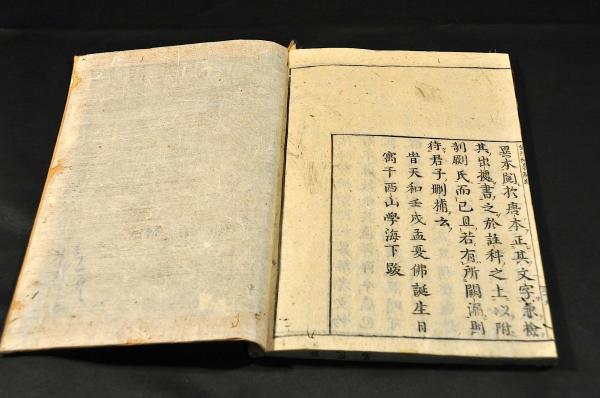 異本閱於唐本正其文字兼檢
其出據書之於註科之上以附
剞劂氏而已且若有所闕漏則
待君子刪補云
旹天和壬戌孟夏佛誕生日
寓于西山學海下跋